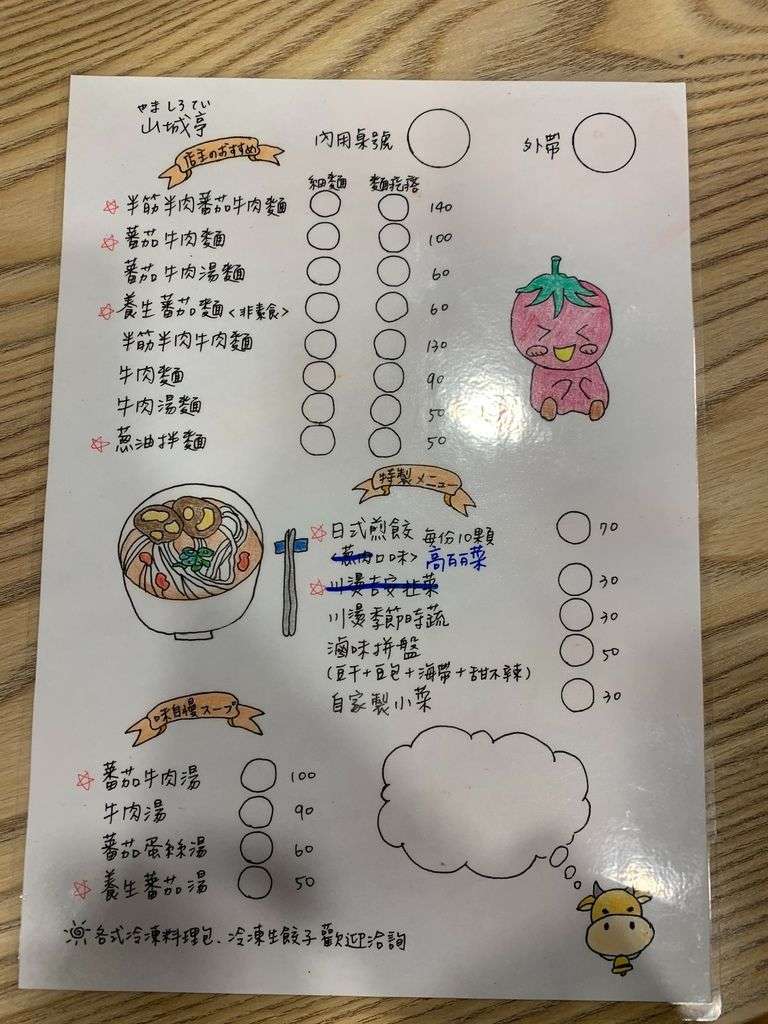 やましろてい
山城亭
內用桌號
外帶
店主のおすすめ
細麵 麵疙瘩
半筋半肉蕃茄牛肉麵 140
蕃茄牛肉麵 100
蕃茄牛肉湯麵 60
養生蕃茄麵<非素食> 60
半筋半肉牛肉麵 130
牛肉麵 90
牛肉湯麵 50
蔥油拌麵 50
特製メニュー
日式煎餃 每份10顆 70
<蔥肉口味> 高百菜
川燙吉安韭菜 30
川燙季節時蔬 30
滷味拼盤 50
(豆干+豆包+海帶+甜不辣)
自家製小菜 30
味自慢スープ
蕃茄牛肉湯 100
牛肉湯 90
蕃茄蛋絲湯 60
養生蕃茄湯 50
各式冷凍料理包、冷凍生餃子歡迎洽詢